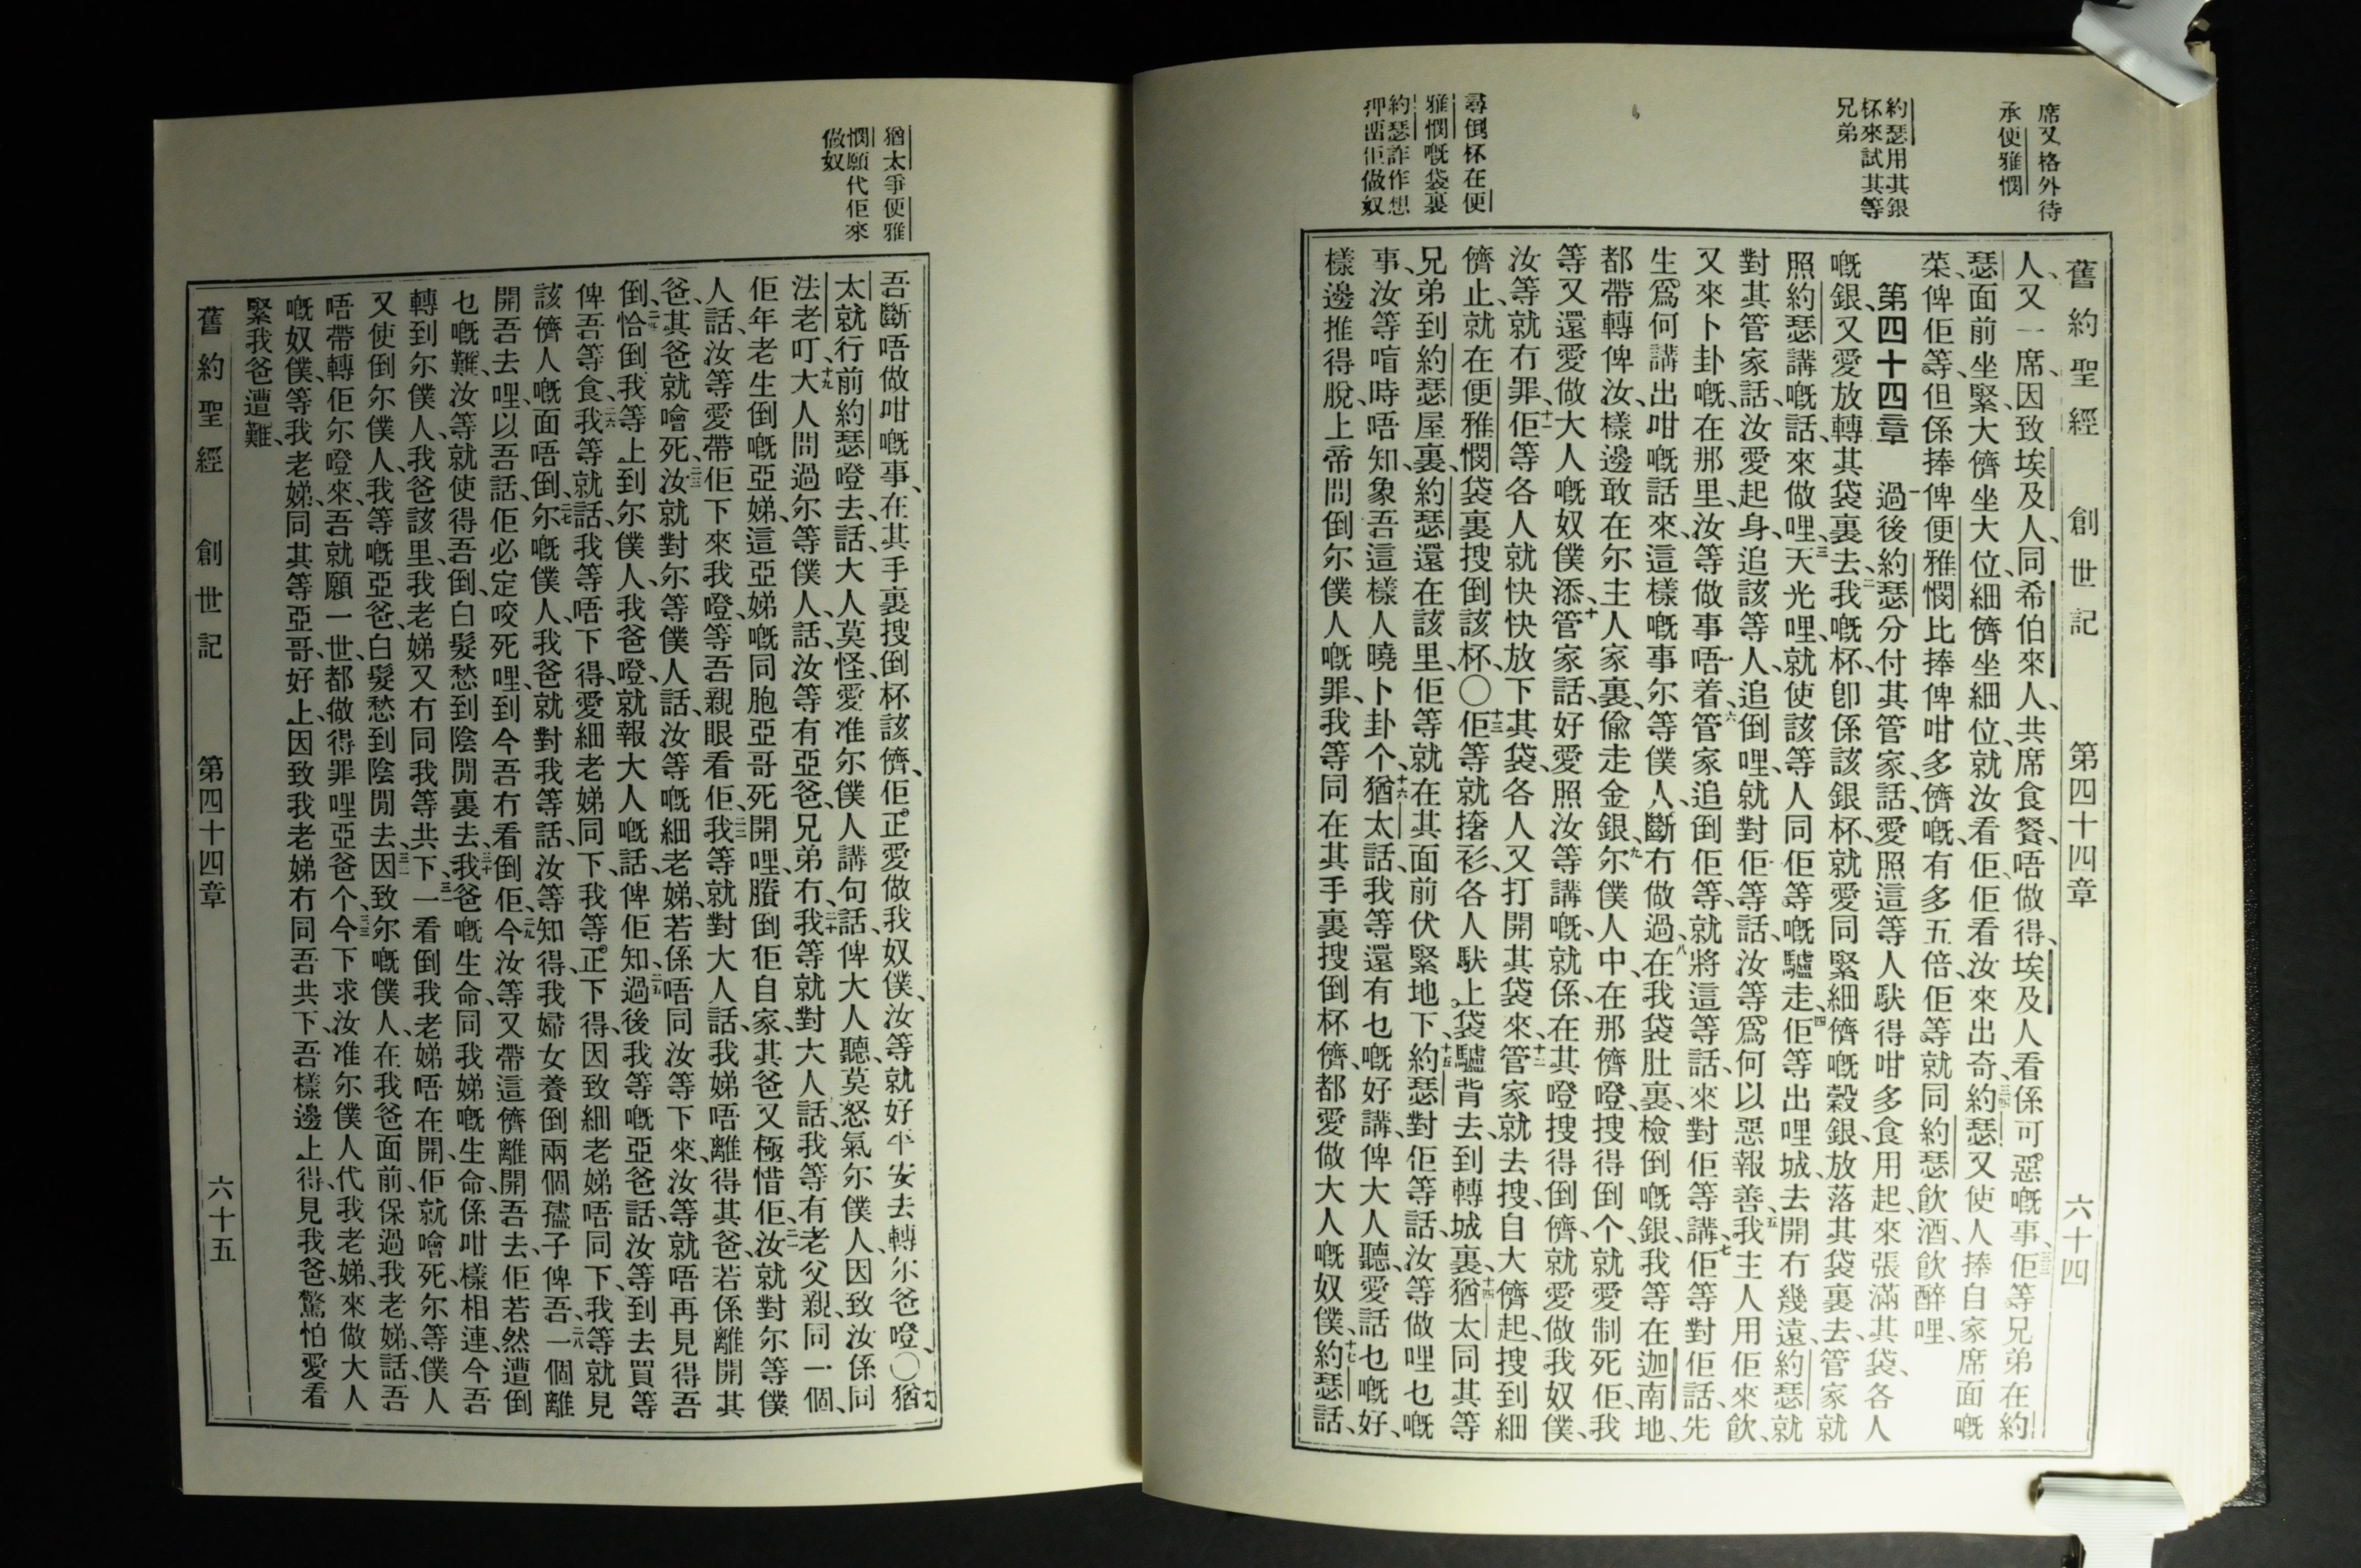 席又格外待
承便雅憫
約瑟用其銀
杯來試其等
兄弟
尋倒杯在便
雅憫嘅袋裏
約瑟詐作想
押畱佢做奴
舊約聖經 創世記 第四十四章 六十四
人、又一席、因致埃及人、同希伯來人、共席食餐、唔做得、埃及人看係可惡嘅事、三三佢等兄弟在約
瑟面前坐緊、大儕坐大位、細儕坐細位、就汝看佢、佢看汝、來出奇、三四約瑟又使人捧自家席面嘅
菜、俾佢等、但係捧俾便雅憫、比捧俾咁多儕嘅、有多五倍、佢等就同約瑟飲酒、飲醉哩、
第四十四章 一過後約瑟分付其管家、話、愛照這等人䭾得咁多食用起來、張滿其袋、各人
嘅銀、又愛放轉其袋裏去、二我嘅杯、卽係該銀杯、就愛同緊細儕嘅穀銀、放落其袋裏去、管家就
照約瑟講嘅話、來做哩、三天光哩、就使該等人同佢等嘅驢走、四佢等出哩城、去開冇幾遠、約瑟就
對其管家話、汝愛起身、追該等人、追倒哩、就對佢等話、汝等爲何以惡報善、五我主人用佢來飲、
又來卜卦嘅、在那里、汝等做事唔着、六管家追倒佢等、就將這等話、來對佢等講、七佢等對佢話、先
生爲何講出咁嘅話來、這樣嘅事、尔等僕人、斷冇做過、八在我袋肚裏、檢倒嘅銀、我等在迦南地、
都帶轉俾汝、樣邊敢在尔主人家裏、偷走金銀、九尔僕人中、在那儕嶝搜得倒个、就愛制死佢、我
等又還愛做大人嘅奴僕添、十管家話、好、愛照汝等講嘅、就係、在其嶝搜得倒儕、就愛做我奴僕、
汝等就冇罪、十一佢等各人就快快放下其袋、各人又打開其袋來、十二管家就去搜、自大儕起、搜到細
儕止、就在便雅憫袋裏搜倒該杯、〇十三佢等就撦衫、各人䭾上袋驢背去、到轉城裏、十四猶太同其等
兄弟到約瑟屋裏、約瑟還在該里、佢等就在其面前伏緊地下、十五約瑟對佢等話、汝等做哩乜嘅
事、汝等唔時唔知、象吾這樣人曉卜卦个、十六猶太話、我等還有乜嘅好講、俾大人聽、愛話乜嘅好、
樣邊推得脫、上帝問倒尔僕人嘅罪、我等同在其手裏搜倒杯儕、都愛做大人嘅奴僕、十七約瑟話、
猶太爭便雅
憫願代佢來
做奴
吾斷唔做咁嘅事、在其手裏搜倒杯該儕、佢正愛做我奴僕、汝等就好平安去轉尔爸嶝、〇十八猶
太就行前約瑟嶝去、話、大人莫怪、愛准尔僕人講句話、俾大人聽、莫怒氣尔僕人、因致汝係同
法老叮大、十九人問過尔等僕人、話、汝等有亞爸、兄弟冇、二十我等就對大人話、我等有老父親、同一個、
佢年老生倒嘅亞娣、這亞娣嘅同胞亞哥死開哩、賸倒佢自家、其爸又極惜佢、二一汝就對尔等僕
人話、汝等愛帶佢下來我嶝、等吾親眼看佢、二二我等就對大人話、我娣唔離得其爸、若係離開其
爸、其爸就噲死、二三汝就對尔等僕人話、汝等嘅細老娣、若係唔同汝等下來、汝等就唔再見得吾
倒、二四恰倒我等上到尔僕人、我爸嶝、就報大人嘅話、俾佢知、二五過後我等嘅亞爸話、汝等到去買等
俾吾等食、二六我等就話、我等唔下得、愛細老娣同下、我等正下得、因致細老娣唔同下、我等就見
該儕人嘅面唔倒、二七尔嘅僕人我爸、就對我等話、汝等知得、我婦女養倒兩個孻子俾吾、二八一個離
開吾去哩、以吾話、佢必定咬死哩、到今吾冇看倒佢、二九今汝等又帶這儕離開吾去、佢若然遭倒
乜嘅難、汝等就使得吾倒、白髮愁到陰間裏去、三十我爸嘅生命、同我娣嘅生命、係咁樣相連、今吾
轉到尔僕人、我爸該里、我老娣又冇同我等共下、三一一看倒我老娣唔在開、佢就噲死、尔等僕人
又使倒尔僕人、我等嘅亞爸、白髮愁到陰間去、三二因致尔嘅僕人、在我爸面前、保過我老娣、話、吾
唔帶轉佢尔嶝來、吾就願一世都做得罪哩亞爸个、三三今下求汝、准尔僕人代我老娣、來做大人
嘅奴僕、等我老娣、同其等亞哥、好上、因致我老娣冇同吾共下、吾樣邊上得、見我爸、驚怕愛看
緊我爸遭難、
舊約聖經 創世記 第四十四章 六十五